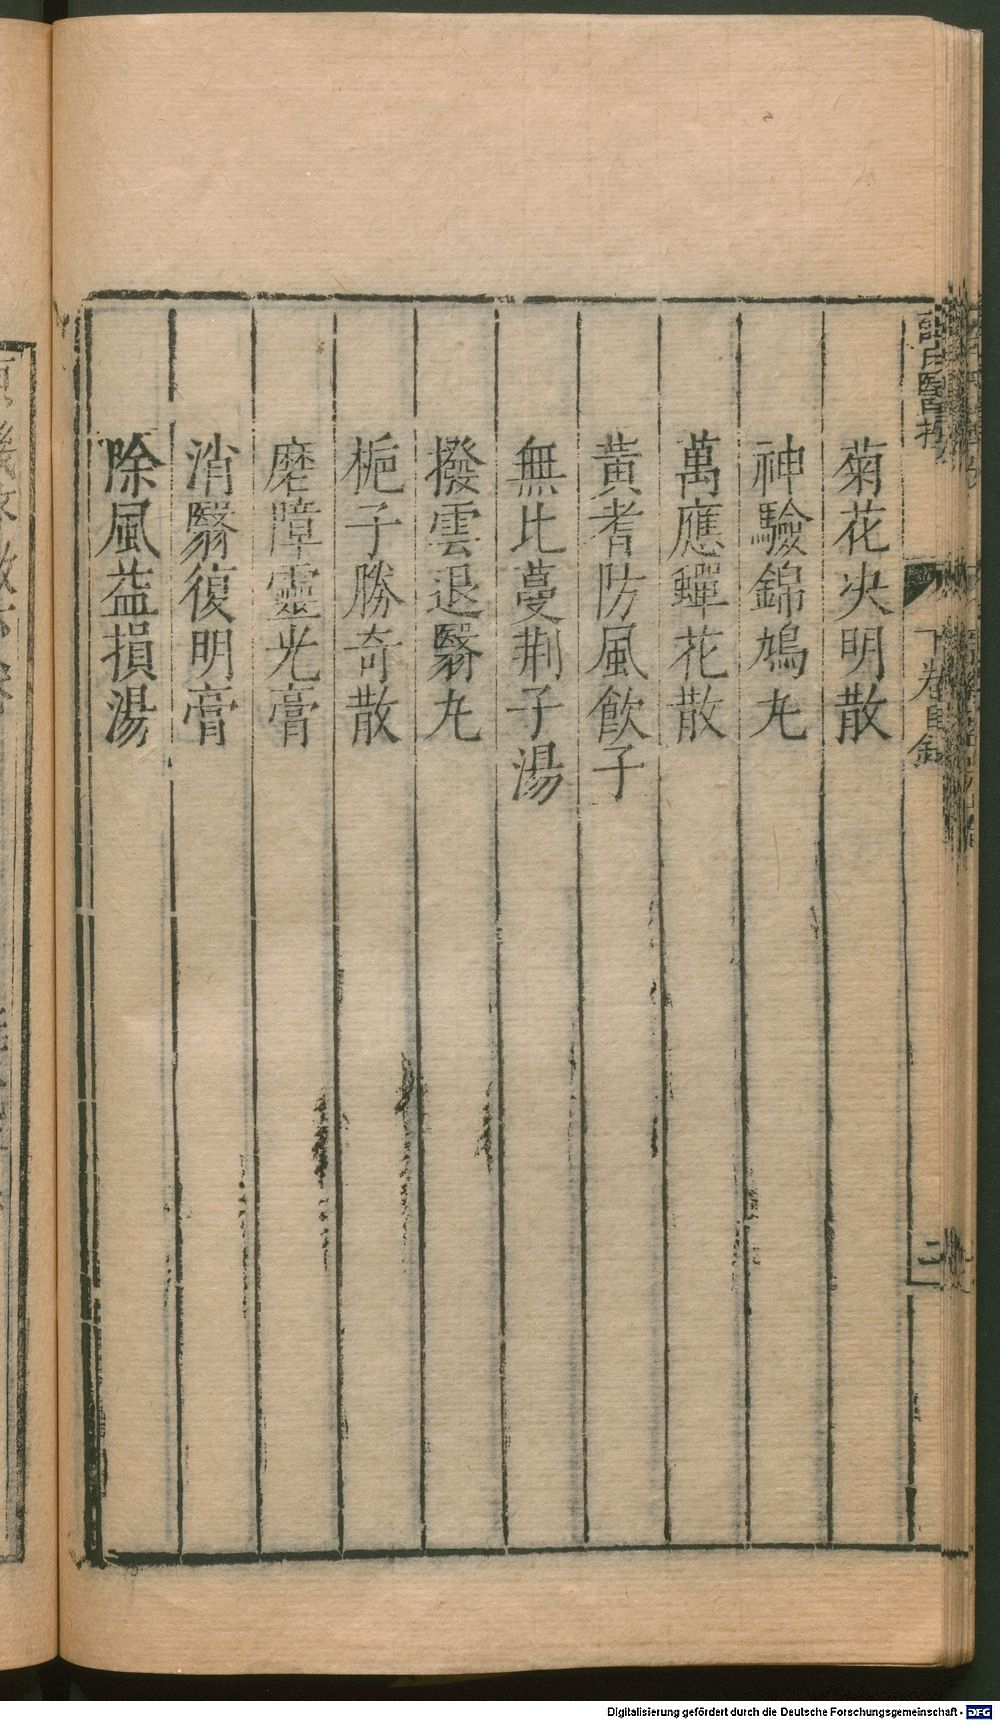 菊花决明散
神驗錦鳩丸
萬應蟬花散
黄耆防風飲子
無比蔓荆子湯
撥雲退翳丸
梔子勝奇散
磨障靈光膏
消翳復明膏
除風益損湯
下卷目錄
二
Digitalisierung gefördert durch die Deutsche Forschungsgemeinschaft - DFG